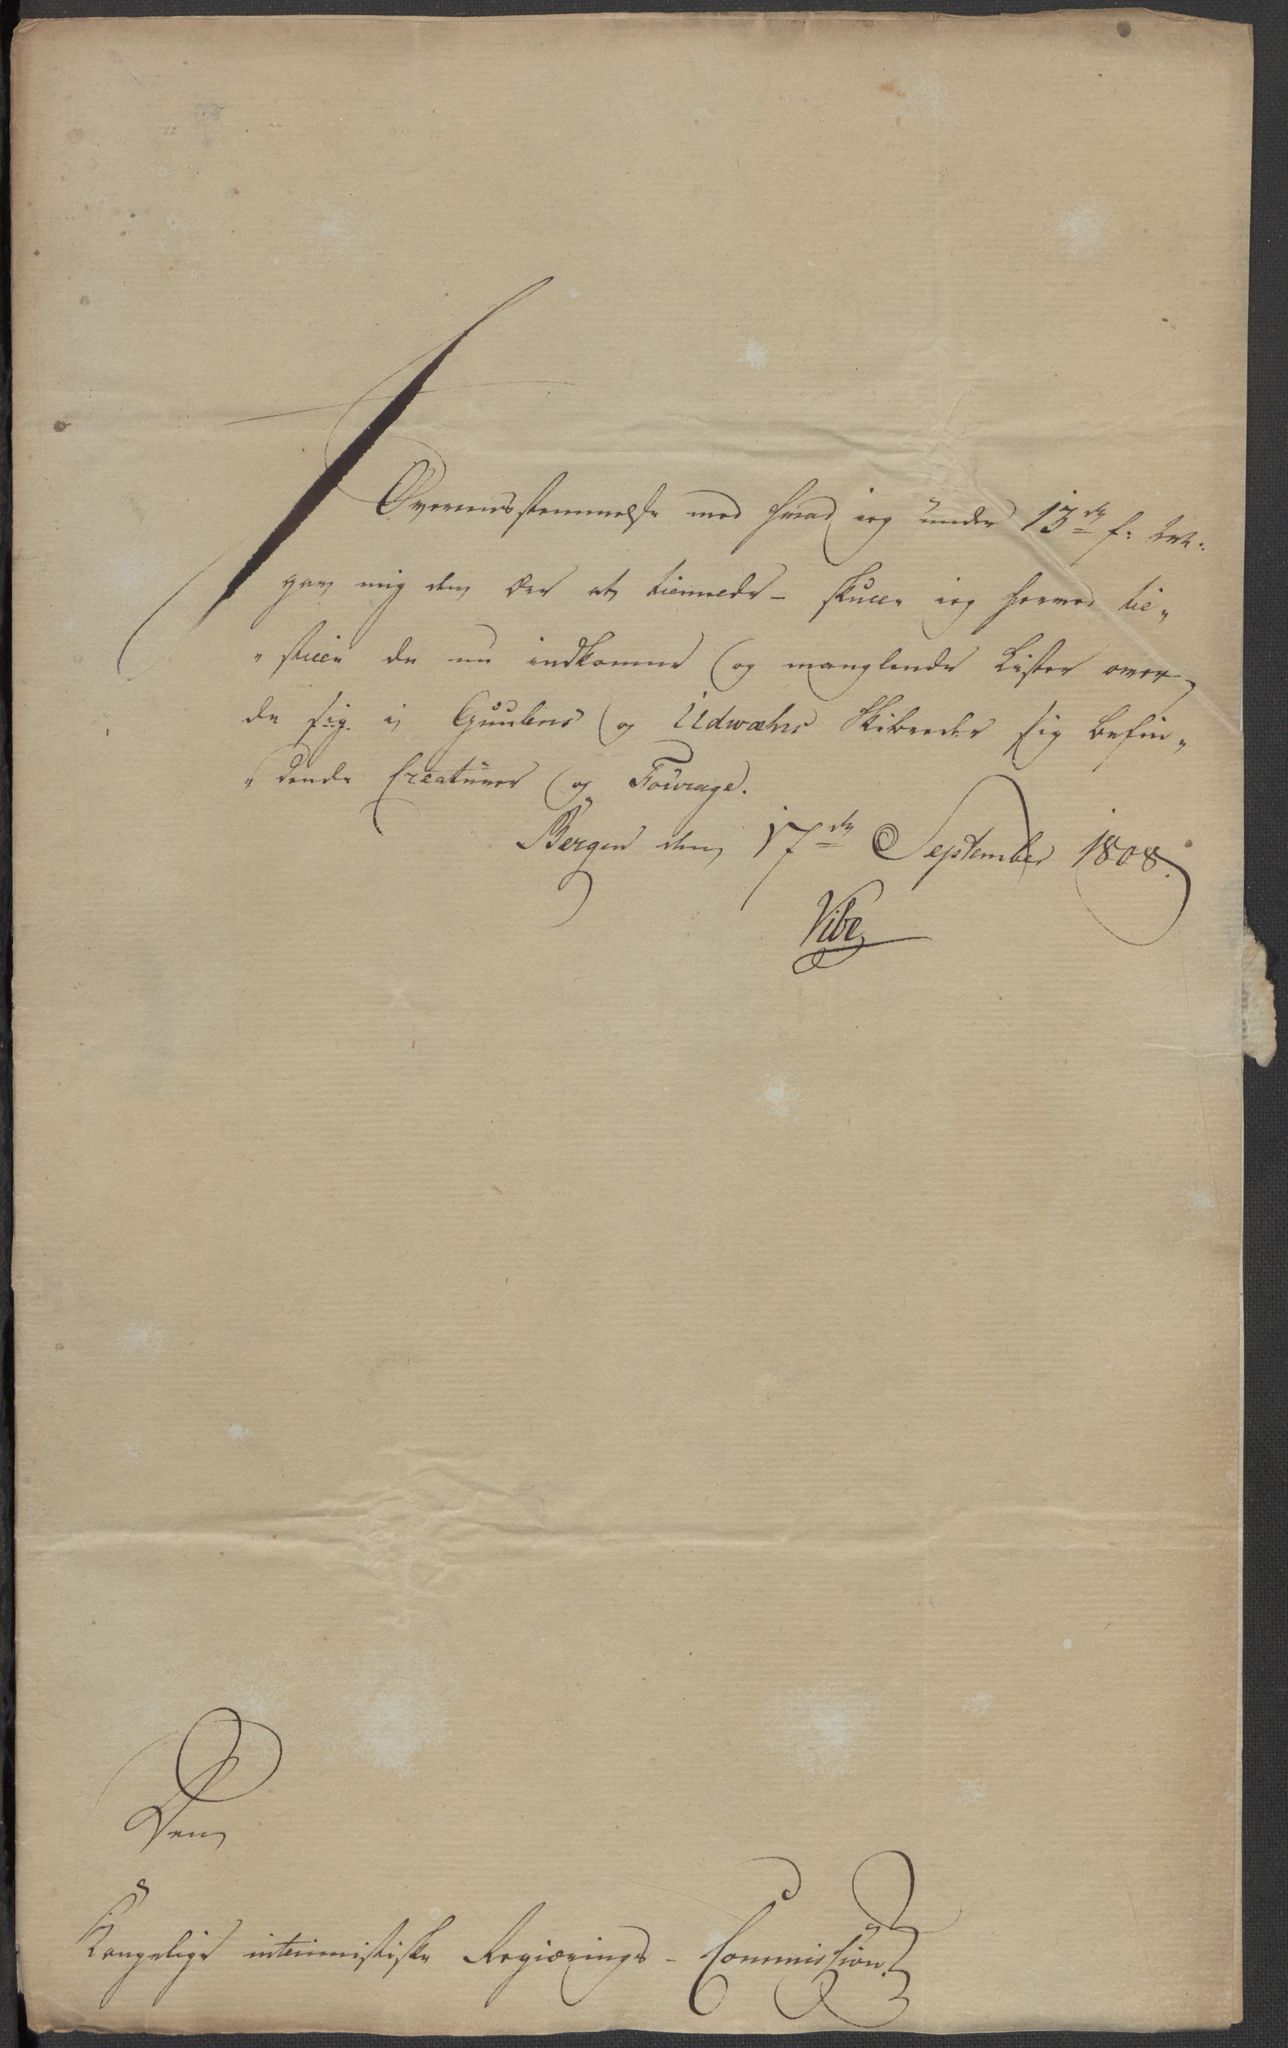 I Overeensstemmelse med hvad ieg under 13de f:
gav mig den Ære at tiennede – skulle ieg hermed til„
„stille de nu indkomne og manglende Lister over
de sig i Guulens og Udwæhrs Skibreder sig befin„
„dende Creaturer og Fourage.
Bergen den 17de September 1808.
Vibe
Den
Kongelige interimistiske Regierings-Commission.